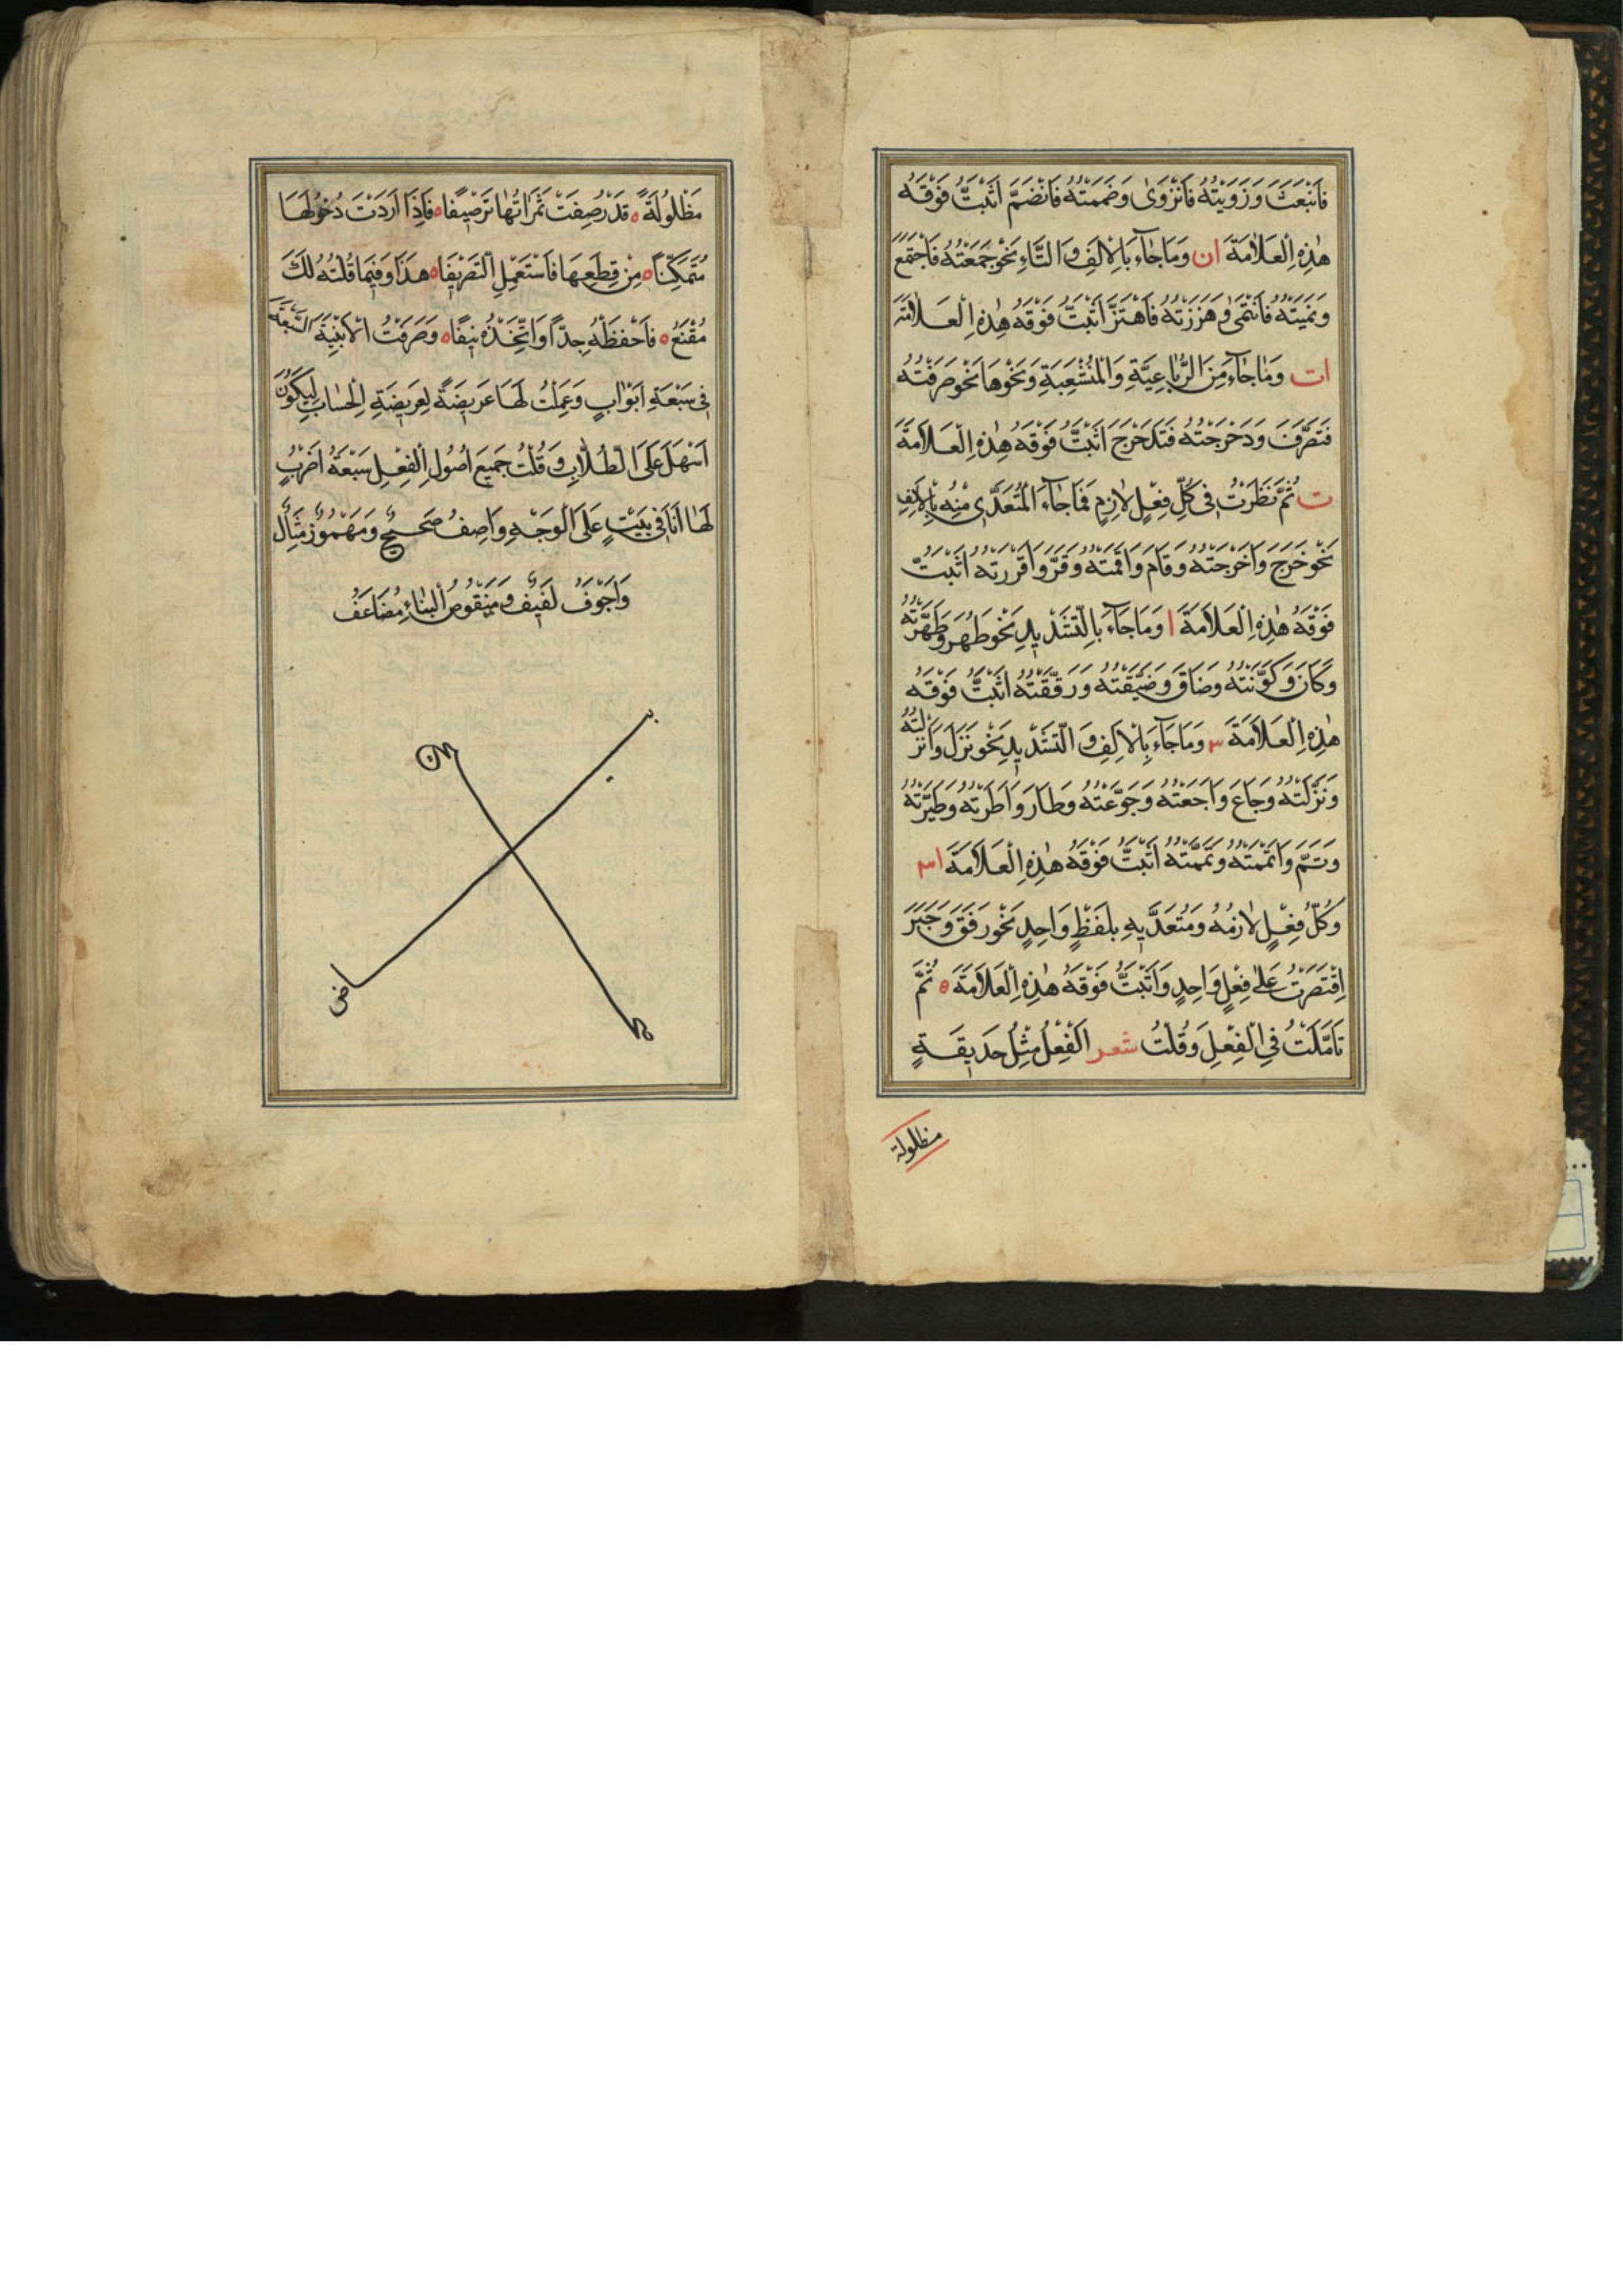 فَانْبَعَثَ وَزَوَيْتُهُ فَانْزَوَىٰ وَضَمَمْتُهُ فَانْضَمَّ اَثْبَتُّ فَوْقَهُ
هٰذِهِ الْعَلَامَةَ ان وَمَا جَآءَ بِالْاَلِفِ وَالتَّاءِ نَحْوُ جَمَعْتُهُ فَاجْتَمَعَ
وَنَمَيْتُهُ فَانْتَمَىٰ وَهَزَزْتُهُ فَاهْتَزَّ اَثْبَتُّ فَوْقَهُ هٰذِهِ الْعَلَامَةَ
ات وَمَا جَآءَ مِنَ الرُّبَاعِيَّةِ وَالْمُنْشَعِبَةِ وَنَحْوِهَا نَحْوُ صَرَفْتُهُ
فَتَصَرَّفَ وَدَحْرَجْتُهُ فَتَدَحْرَجَ اَثْبَتُّ فَوْقَهُ هٰذِهِ الْعَلَامَةَ
ت ثُمَّ نَظَرْتُ فِى كُلِّ فِعْلٍ لَازِمٍ فَمَا جَآءَ الْمُتَعَدِّى مِنْهُ بِالْاَلِفِ
نَحْوُ خَرَجَ وَاَخْرَجْتُهُ وَقَامَ وَاَقَمْتُهُ وَقَرَّ وَاَقْرَرْتُهُ اَثْبَتُّ
فَوْقَهُ هٰذِهِ الْعَلَامَةَ ا وَمَا جَآءَ بِالتَّشْدِيدِ نَحْوُ طَهُرَ وَطَهَّرْتُهُ
وَكَانَ وَكَوَّنْتُهُ وَضَاقَ وَضَيَّقْتُهُ وَرَقَّقْتُهُ اَثْبَتُّ فَوْقَهُ
هٰذِهِ الْعَلَامَةَ س وَمَا جَآءَ بِالْاَلِفِ وَالتَّشْدِيدِ نَحْوُ نَزَلَ وَاَنْزَلْتُهُ
وَنَزَّلْتُهُ وَجَاعَ وَاَجَعْتُهُ وَجَوَّعْتُهُ وَطَارَ وَاَطَرْتُهُ وَطَيَّرْتُهُ
وَتَمَّ وَاَتْمَمْتُهُ وَتَمَّمْتُهُ اَثْبَتُّ فَوْقَهُ هٰذِهِ الْعَلَامَةَ اس
وَكُلُّ فِعْلٍ لَازِمُهُ وَمُتَعَدِّيهِ بِلَفْظٍ وَاحِدٍ نَحْوُ رَفَقَ وَجَبَرَ
اِقْتَصَرْتُ عَلىٰ فِعْلٍ وَاحِدٍ وَاَثْبَتُّ فَوْقَهُ هٰذِهِ الْعَلَامَةَ ه ثُمَّ
تَاَمَّلْتُ فِى الْفِعْلِ وَقُلْتُ شعر اَلْفِعْلُ مِثْلُ حَدِيقَةٍ
مظلولة
مَظْلُولَةٍ ه قَدْ رُصِفَتْ ثَمَرَاتُهَا تَرْصِيفًا ه فَاِذَا اَرَدْتَ دُخُولَهَا
مُتَمَكِّنًا ه مِنْ قِطَعِهَا فَاسْتَعْمِلِ التَّصْرِيفَا ه هٰذَا وَفِيمَا قُلْتُهُ لَكَ
مُقْنَعٌ ه فَاحْفَظْهُ جِدًّا وَاتَّخِذْهُ نِيفًا ه وَصَرَفْتُ الْاَبْنِيَةَ السَّبْعَةَ
فِى سَبْعَةِ اَبْوَابٍ وَعَمِلْتُ لَهَا عَرِيضَةً لِعَرِيضَةِ الْحِسَابِ لِيَكُونَ
اَسْهَلَ عَلَى الطُّلَّابِ وَقُلْتُ جَمِيعُ اُصُولِ الْفِعْلِ سَبْعَةُ اَضْرُبٍ
لَهَا اَنَا فِى بَيْتٍ عَلَى الْوَجْهِ وَاصِفُ صَحِيحٌ وَمَهْمُوزٌ مِثَالٌ
وَاَجْوَفُ لَفِيفٌ وَمَنْقُوصُ الْبِنَاءِ مُضَاعَفُ